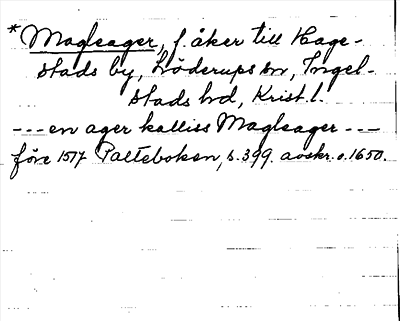 * Magleager, f. åker till Hage-
stads by, Löderups sn, Ingel-
stads hd, Krist. l.
--- en ager kalliss Magleager ---
före 1517 Palteboken, s. 399. avskr. o. 1650.